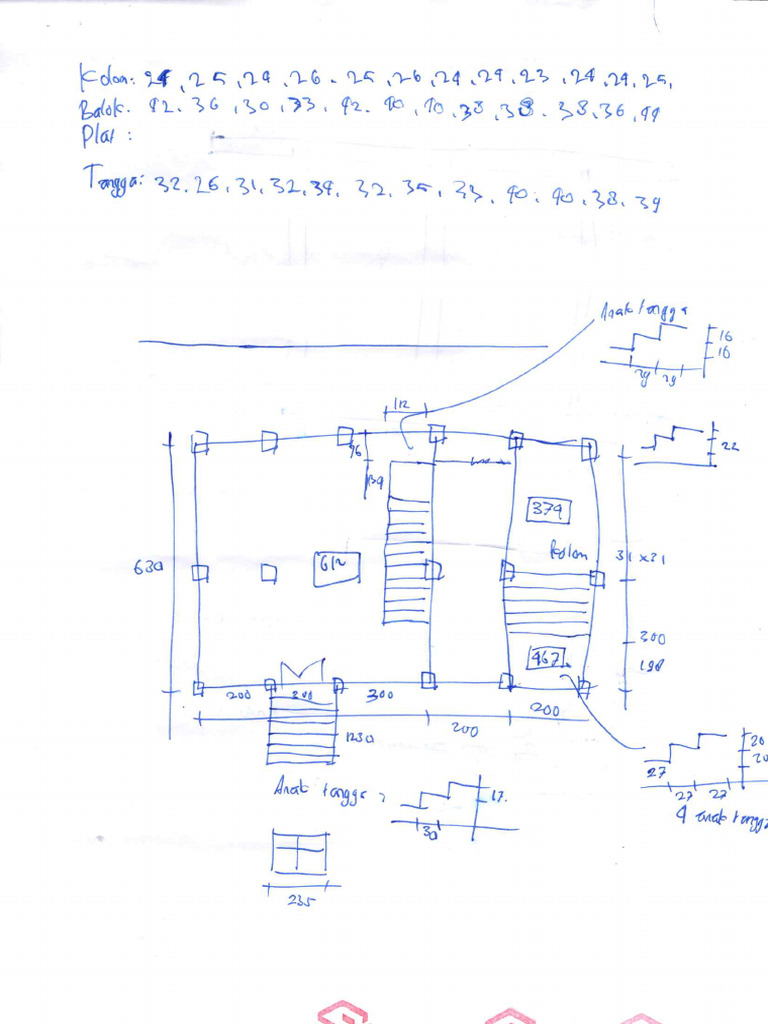 Kolom: 24, 25, 24, 26. 25, 26, 24, 24, 23, 24, 24, 25,
Balok: 42. 36, 30, 33, 42. 40, 40, 38, 38. 38, 36, 44
Plat :
Tangga: 32, 26, 31, 32, 34, 32, 35, 33, 40, 40, 38, 34
Anak tangga
16
16
29 29
112
96
139
22
374
630
612
31 x 21
300
467
198
200 200 300
200
200
1230
20
20
27
27 27
4 anak tangga
Anak tangga :
17.
30
235